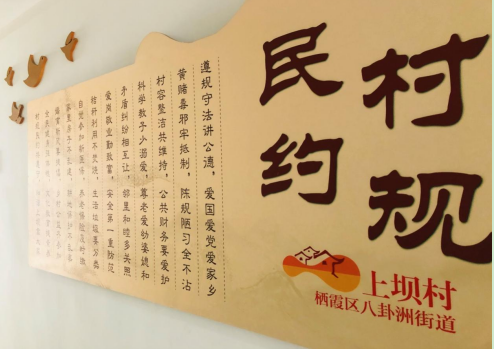 村规
民约
上坝村
栖霞区八卦洲街道
遵规守法讲公德，爱国爱党爱家乡
黄赌毒邪牢抵制，陈规陋习全不沾
村容整洁共维持，公共财务要爱护
科学教子少溺爱，尊老爱幼婆媳和
矛盾纠纷相互让，邻里和睦多关照
爱岗敬业勤致富，安全第一重防范
秸秆利用不焚烧，生活垃圾要分类
自觉参加新医保，养老保险及时缴